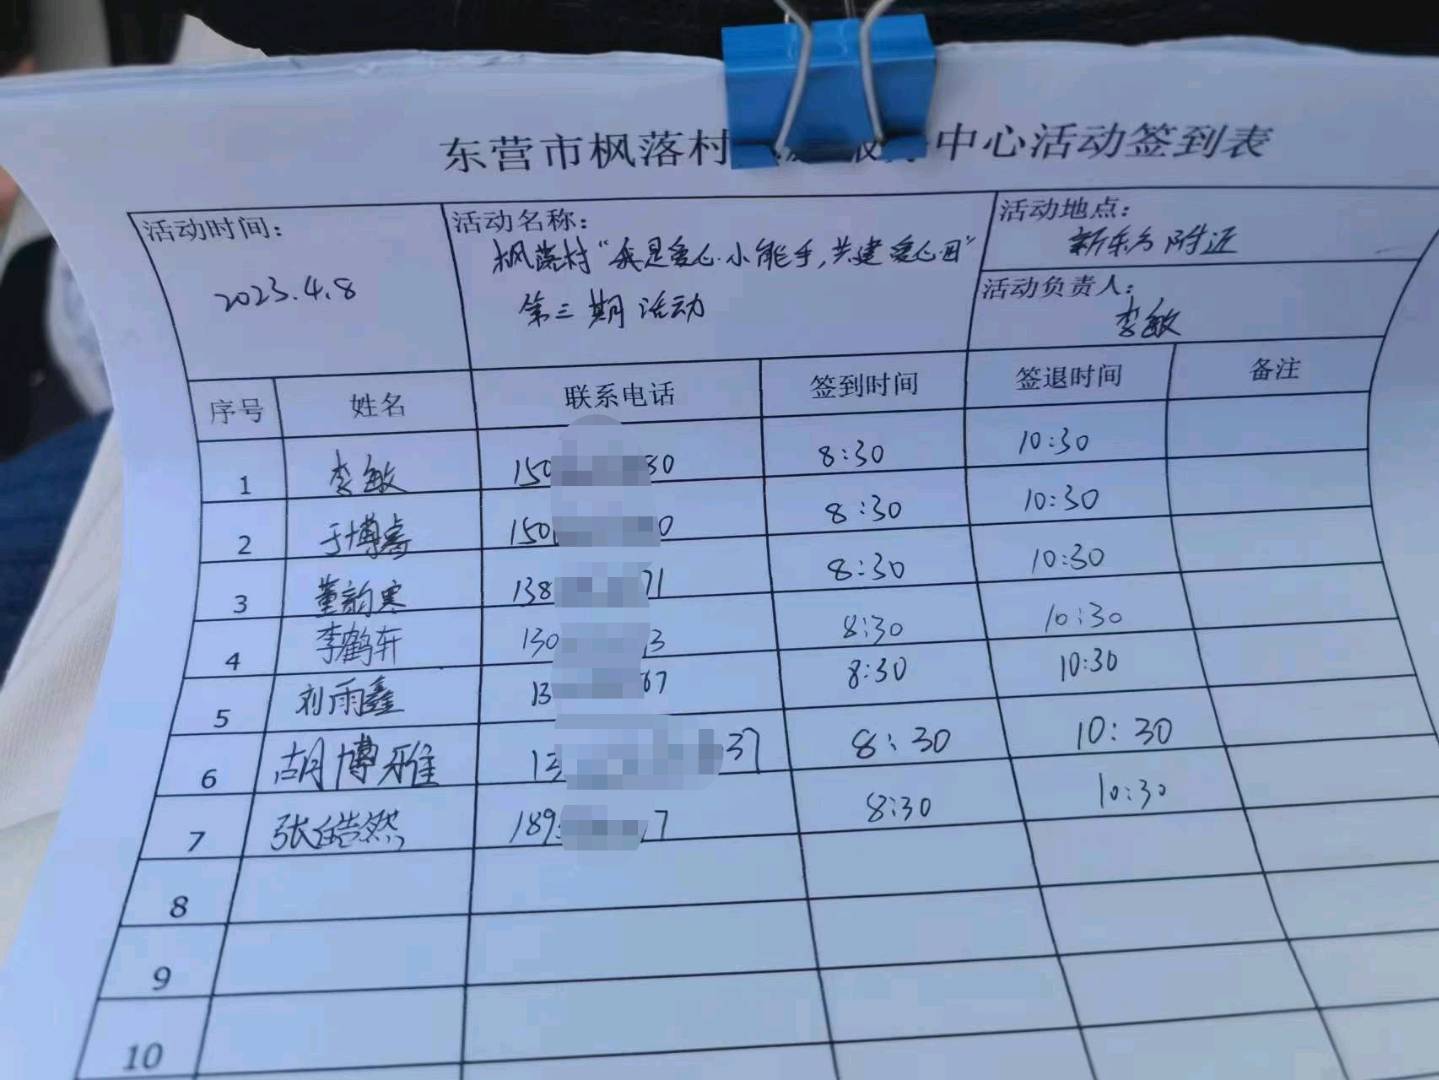 东营市枫落村 中心活动签到表
活动时间：
2023.4.8
活动名称：
枫落村“我是爱心小能手，共建爱心园”
第三期活动
活动地点：
新东方附近
活动负责人：
李敏
序号 姓名 联系电话 签到时间 签退时间 备注
1 李敏 150 30 8:30 10:30
2 于博睿 150 0 8:30 10:30
3 董韵寒 138 71 8:30 10:30
4 李鹤轩 130 3 8:30 10:30
5 刘雨鑫 13 67 8:30 10:30
6 胡博雅 13 37 8:30 10:30
7 张皓然 189 7 8:30 10:30
8
9
10